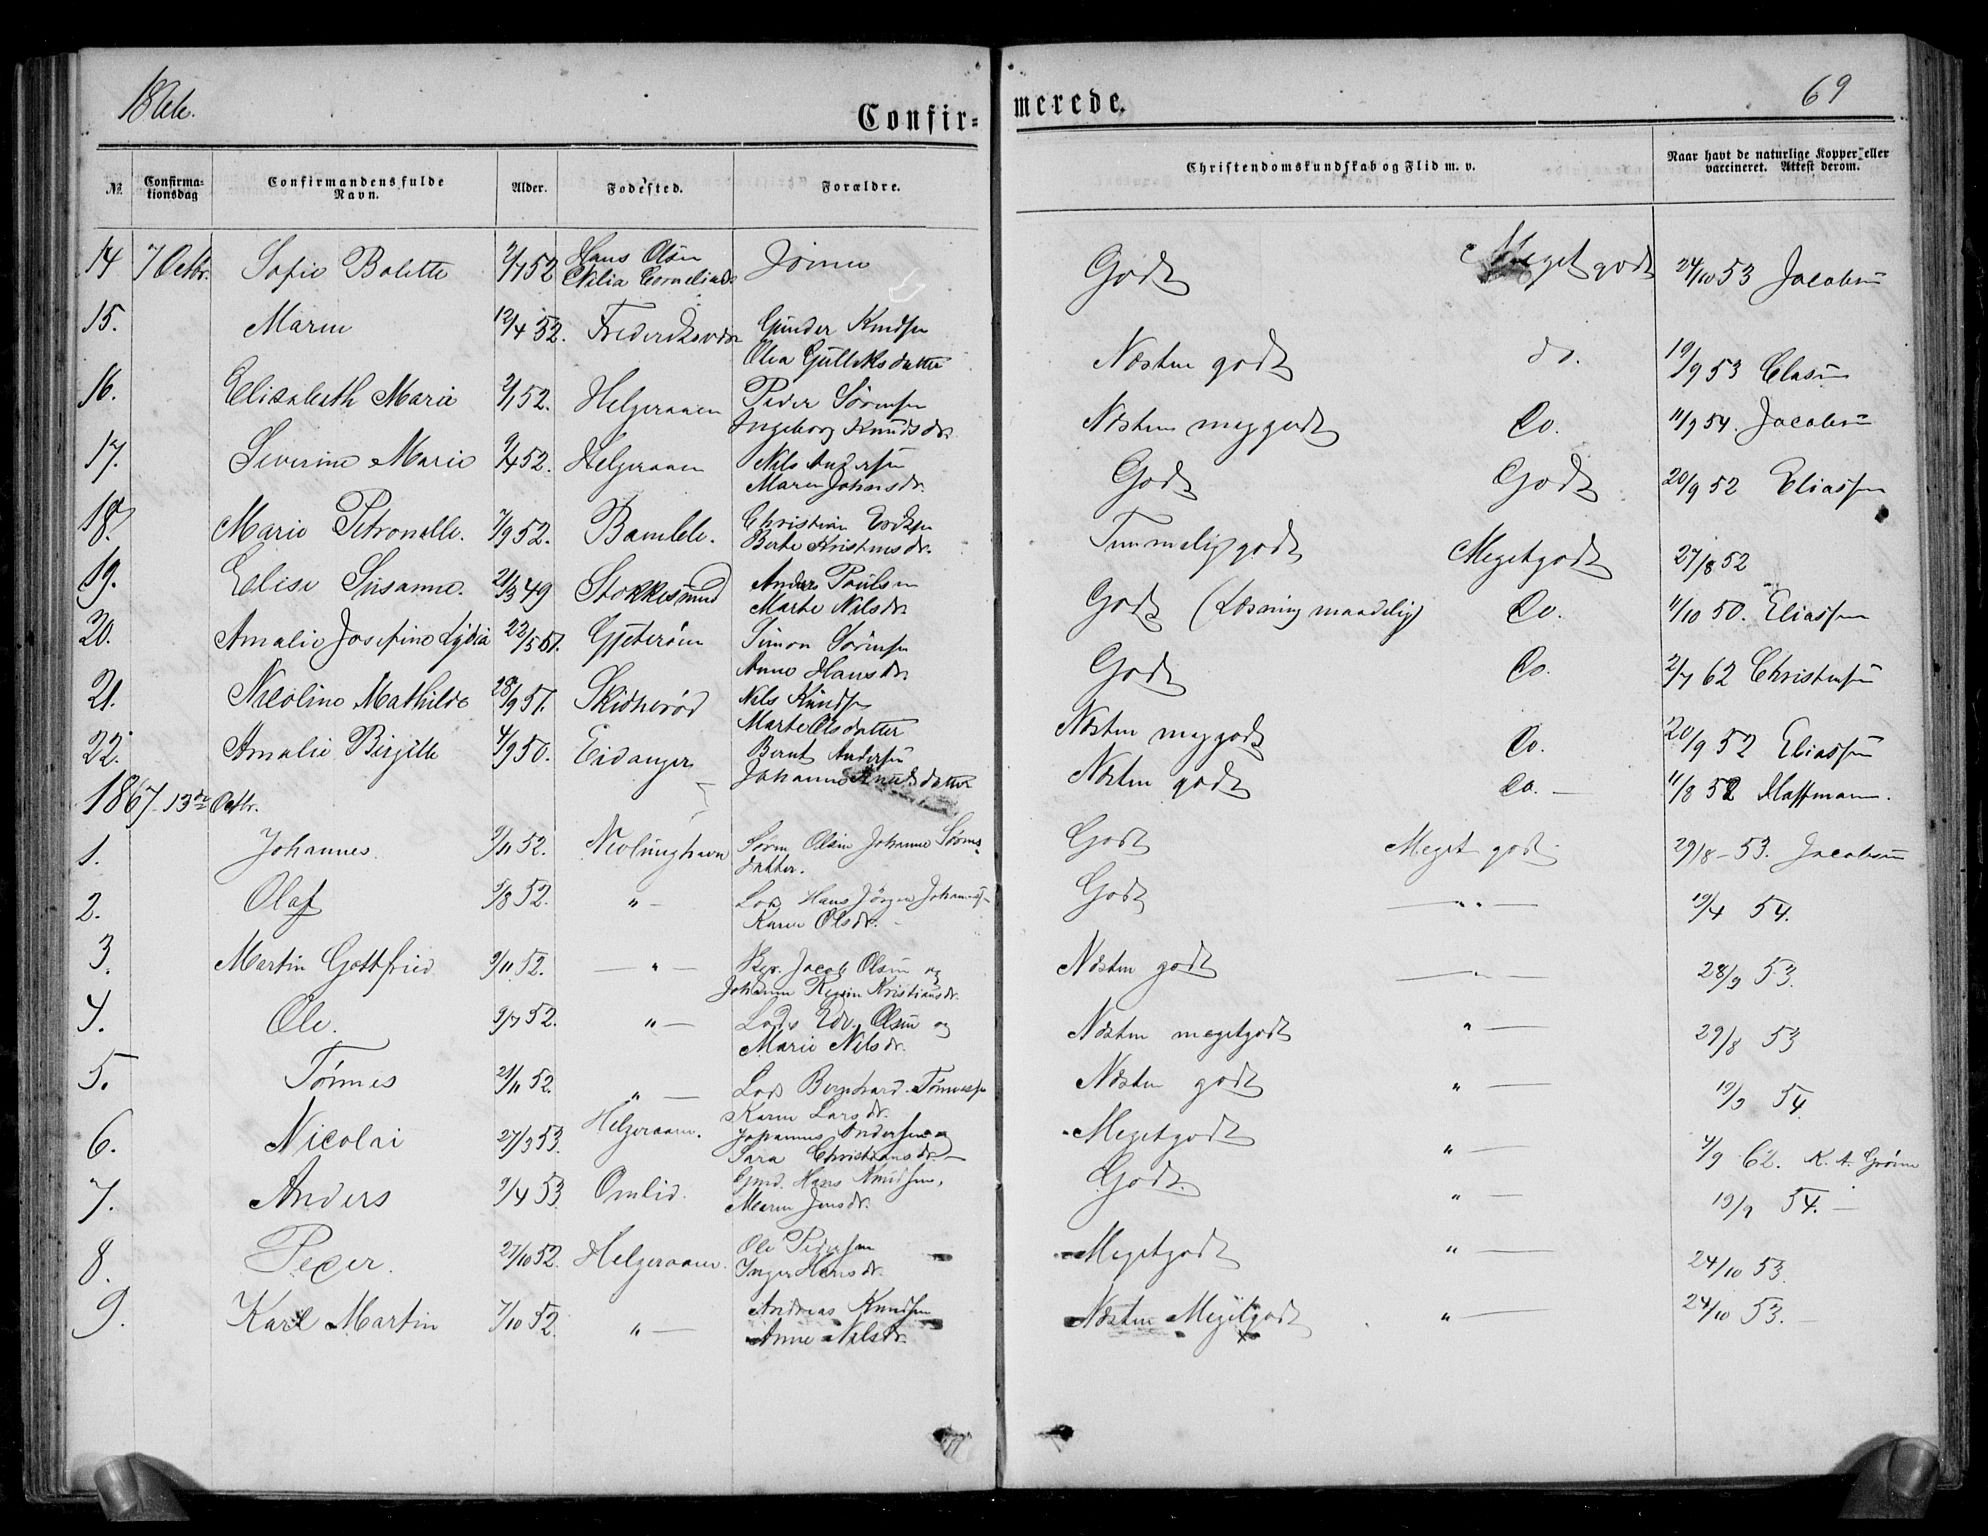 1866.
Confirmerede.
69
No.
Confirmationsdag
Confirmandens fulde Navn.
Alder.
Fødested.
Forældre.
Christendomskundskab og Flid m. v.
Naar havt de naturlige Kopper eller vaccineret. Attest derom.
14 7 Octbr. Sofie Bolette 52 Hans Olsen Godt Meget godt 24/10 53 Jacobsen
15. Maren 12/4 52. Gunder Knudsen
Olea Gulleksdatter Næsten godt do. 19/9 53 Clasen
16. Elisabeth Marie 2/1 52. Helgeraaen Peder Sørensen
Ingeborg Knudsdr. Næsten meg godt Do. 11/9 54. Jacobsen
17. Severine Marie 9/4 52. Helgeraaen Nils Andersen
Maren Johnsdr. Godt Godt 20/9 52 Eliassen
18. Marie Petronelle. 7/9 52. Bamble. Christian
Berte Kristensdr. Temmelig godt Megetgodt 27/8 52
19. Elise Susanne. 21/3 49 Stokkesund Anders Poulsen
Marte Nilsdr. Godt (Læsning maadelig) Do. 11/10 50. Eliassen
20. Amalie Josefine Lydia 22/5 51. Gjeterøen Simon Sørensen
Anne Hansdr. Godt Do. 2/7 62 Christensen
21. Nicoline Mathilde 28/9 51. Nils Knudsen
Marte Olsdatter Næsten meg godt Do. 20/9 52 Eliassen
22. Amalie Birgitte 4/9 50. Eidanger Bernt Andersen
Johanne Knudsdatter Næsten godt Do. — 11/8 52 Haffmann.
1867. 13de Octbr.
1. Johannes. 9/11 52. Nevlunghavn Søren Olsen Johanne Sørens-
datter. Godt Meget godt 29/8 - 53. Jacobsen
2. Olaf 5/8 52. " — Lods Hans Jørgen Johannessen
Karen Olsdr. Godt — " — 19/4 54.
3. Martin Gottfried 9/11 52. — " — Jacob Olsen og
Johanne Kristiansdr. Næsten godt — " — 28/9 53.
4. Ole. 9/7 52. " — Lods Edv. Olsen og
Marie Nilsdr. Næsten megetgodt " — 29/8 53
5. Tønnes 21/11 52. " — Lods Bernhard Tønnessen
Karen Larsdr. Næsten godt " — 19/9 54
6. Nicolai 27/3 53. Helgeraaen. Johannes Andersen og
Sara Christiansdr. — Megetgodt " — 4/9 62.
7. Anders 9/4 53 Omlid. Gmd. Hans Knudsen,
Maren Jensdr. Godt. " — 19/9 54. —
8. Peder. 27/10 52. Helgeraaen. Ole Pedersen
Inger Hansdr. Megetgodt " — 24/10 53.
9. Karl Martin 7/10 52. " — Andreas Knudsen
Anne Nilsdr. Næsten Megetgodt " — 24/10 53. —